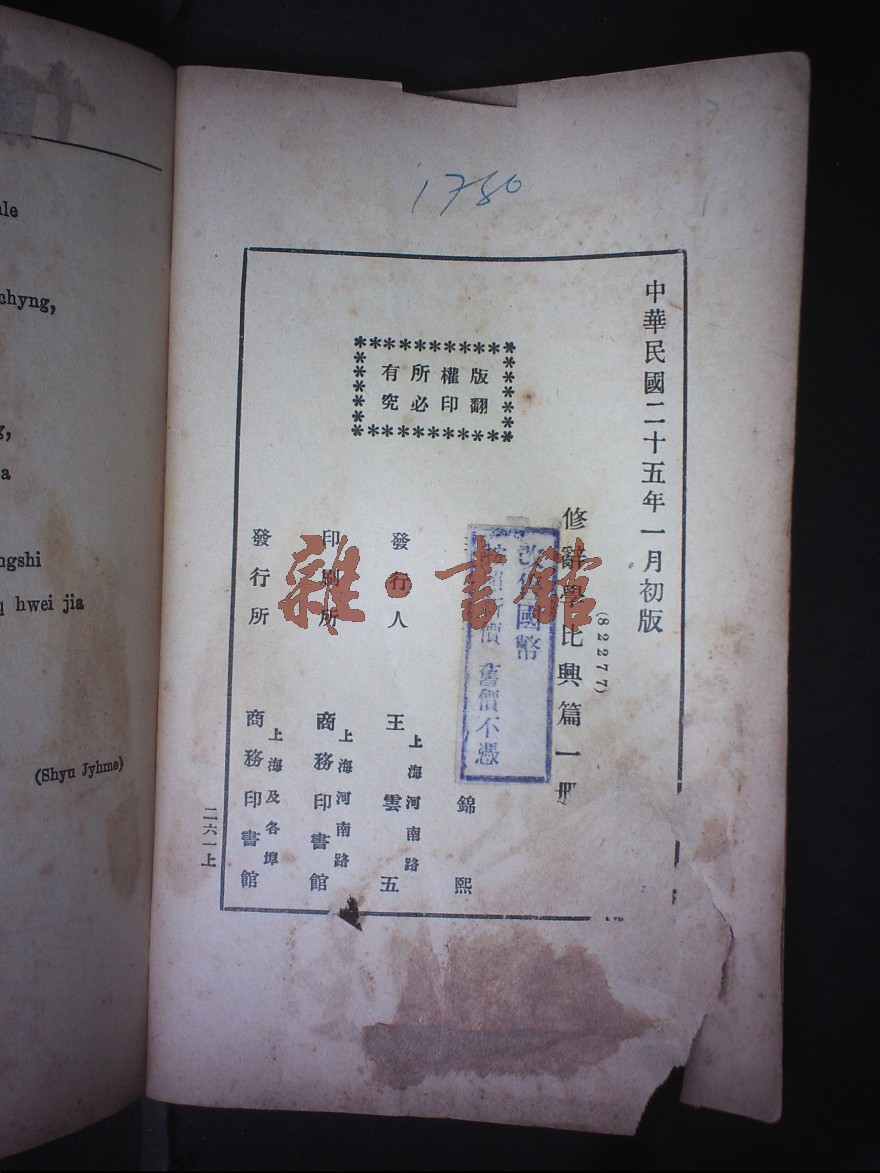 1780
中華民國二十五年一月初版
(82277)
修辭學比興篇一冊
版權所有
翻印必究
改售國幣
舊價不憑
錦熙
發行人
王雲五
上海河南路
印刷所
商務印書館
上海河南路
發行所
商務印書館
上海及各埠
二六一上
雜·書館
chyng,
a
ngshi
hwei jia
(Shyu Jyhmo)